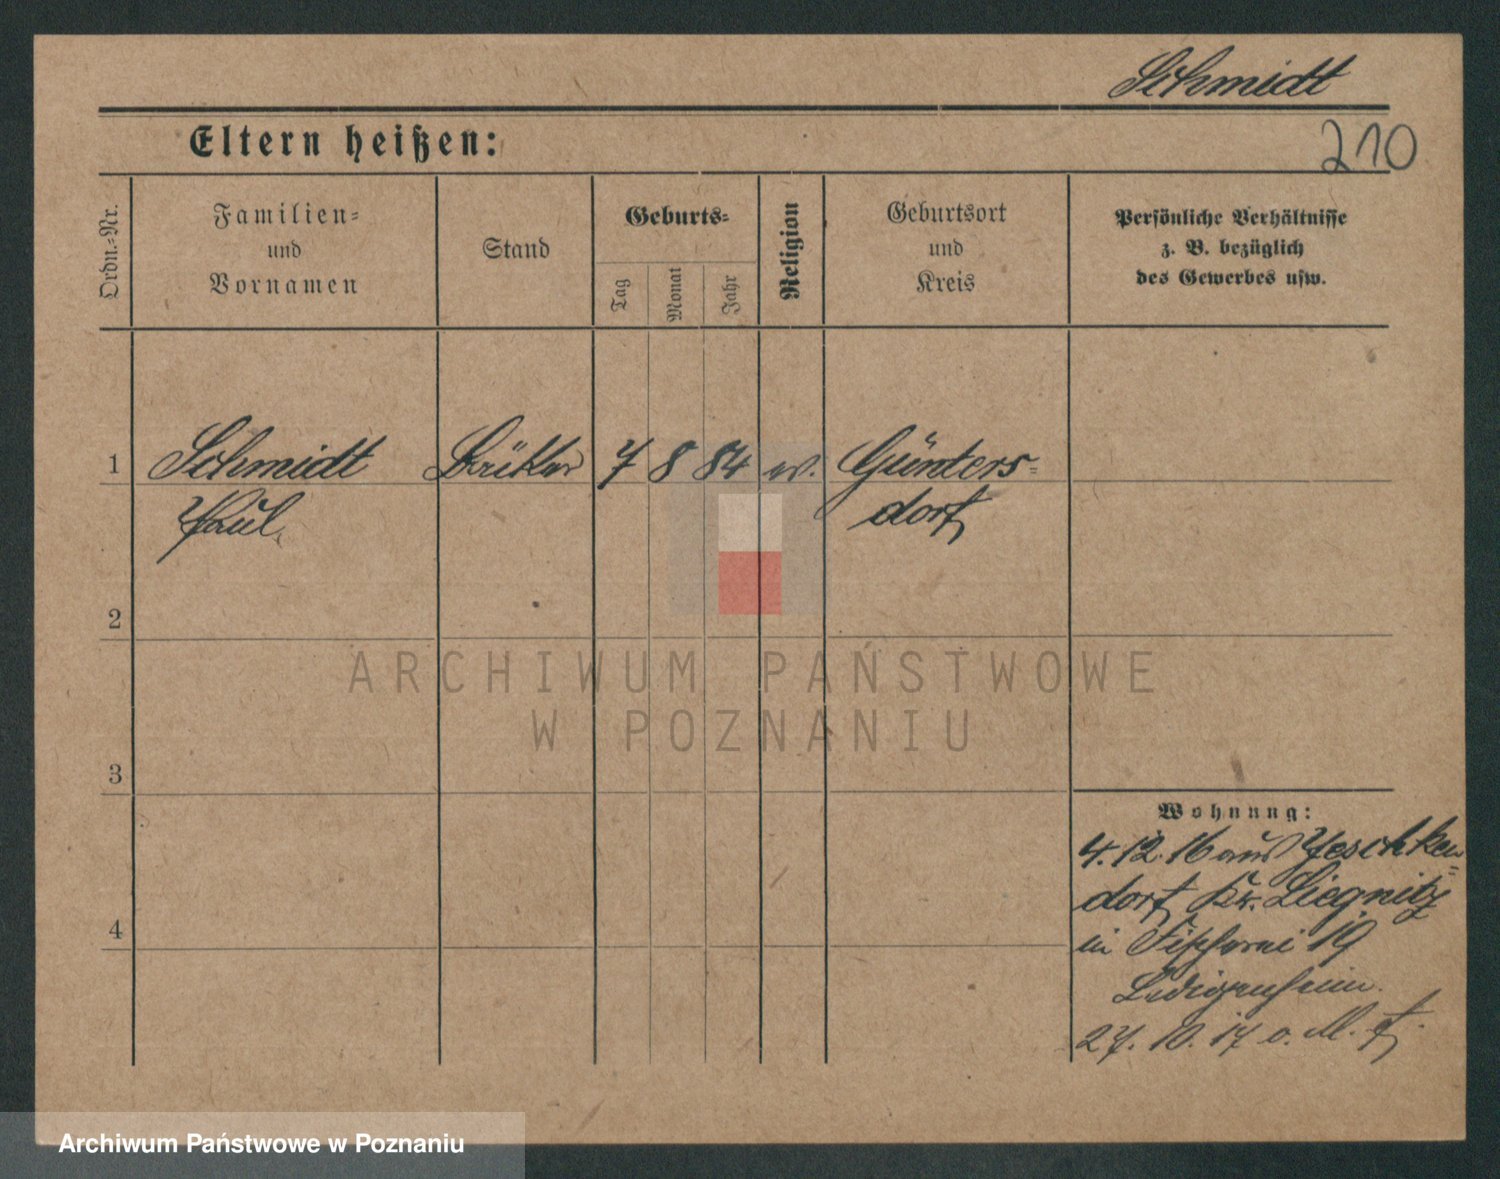 Schmidt
210
Eltern heißen:
Ordn.-Nr.
Familien-
und
Vornamen
Stand
Geburts-
Tag
Monat
Jahr
Religion
Geburtsort
und
Kreis
Persönliche Verhältnisse
z. B. bezüglich
des Gewerbes usw.
1
Schmidt
7 8 84
Günters-
Paul
dorf
2
3
4
Wohnung:
4.12.16 aus Jeschken-
dorf Kr. Liegnitz
in 19
Ledigenheim.
27.10.17 o. M.
ARCHIWUM PAŃSTWOWE
W POZNANIU
Archiwum Państwowe w Poznaniu